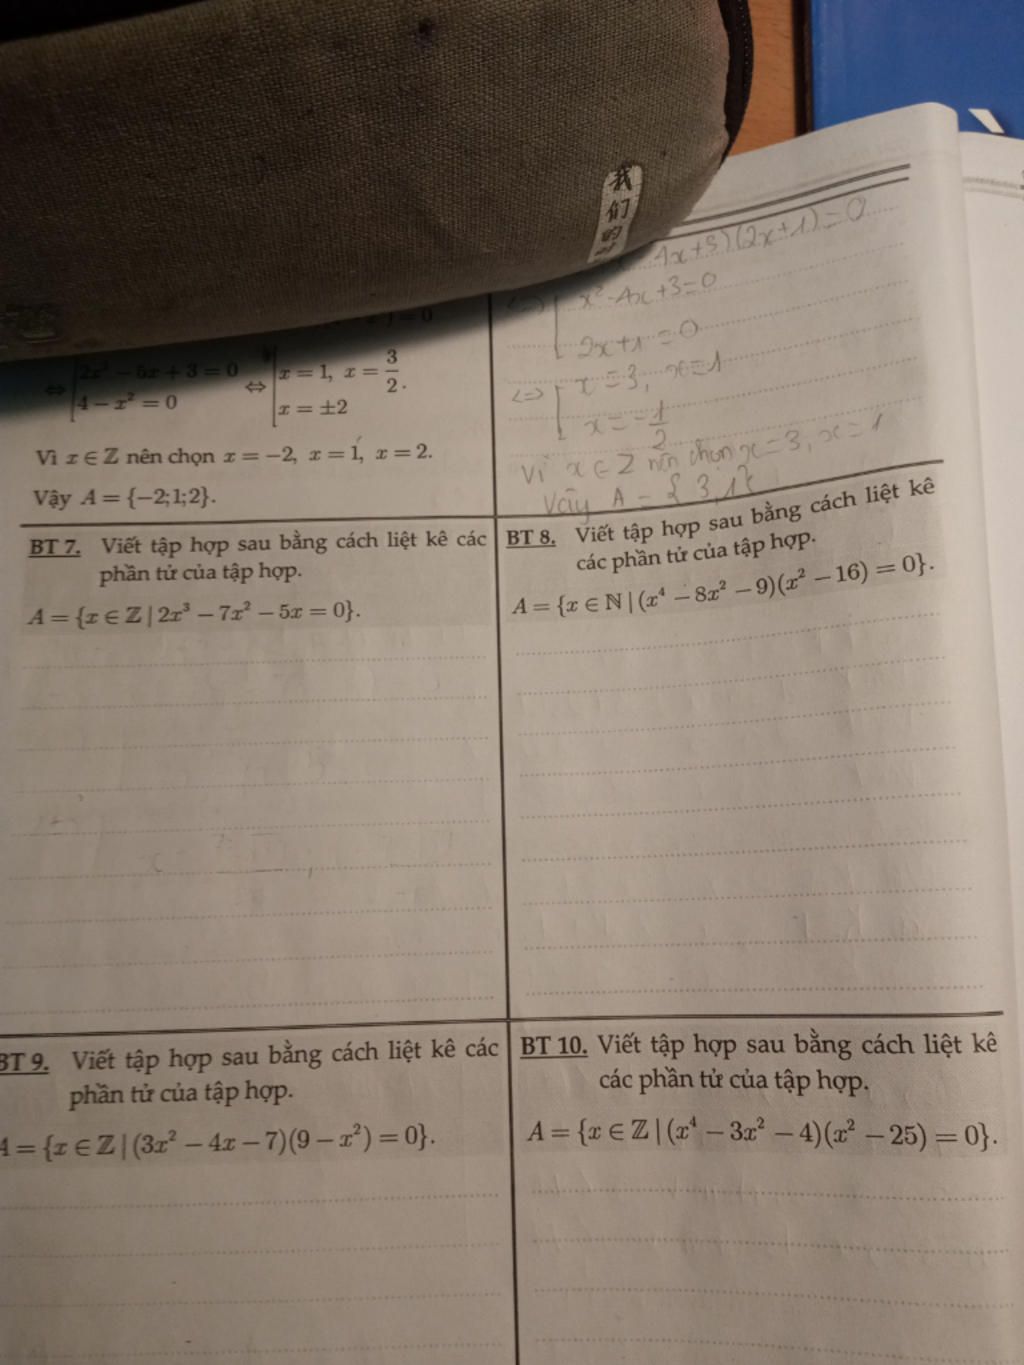 我
们
的
4x+3)(2x+1)=0
x²-4x+3=0
2x+1=0
<=> x=3, x=1
x=-1/2
Vì x ∈ Z nên chọn x=3, x=1
Vậy A = {3,1}
)=0
⇔ [2x²-5x+3=0 ⇔ [x=1, x=3/2.
4-x²=0 x=±2
Vì x∈ℤ nên chọn x=-2, x=1, x=2.
Vậy A={-2;1;2}.
BT 7. Viết tập hợp sau bằng cách liệt kê các
phần tử của tập hợp.
A={x∈ℤ|2x³-7x²-5x=0}.
BT 8. Viết tập hợp sau bằng cách liệt kê
các phần tử của tập hợp.
A={x∈ℕ|(x⁴-8x²-9)(x²-16)=0}.
BT 9. Viết tập hợp sau bằng cách liệt kê các
phần tử của tập hợp.
A={x∈ℤ|(3x²-4x-7)(9-x²)=0}.
BT 10. Viết tập hợp sau bằng cách liệt kê
các phần tử của tập hợp.
A={x∈ℤ|(x⁴-3x²-4)(x²-25)=0}.